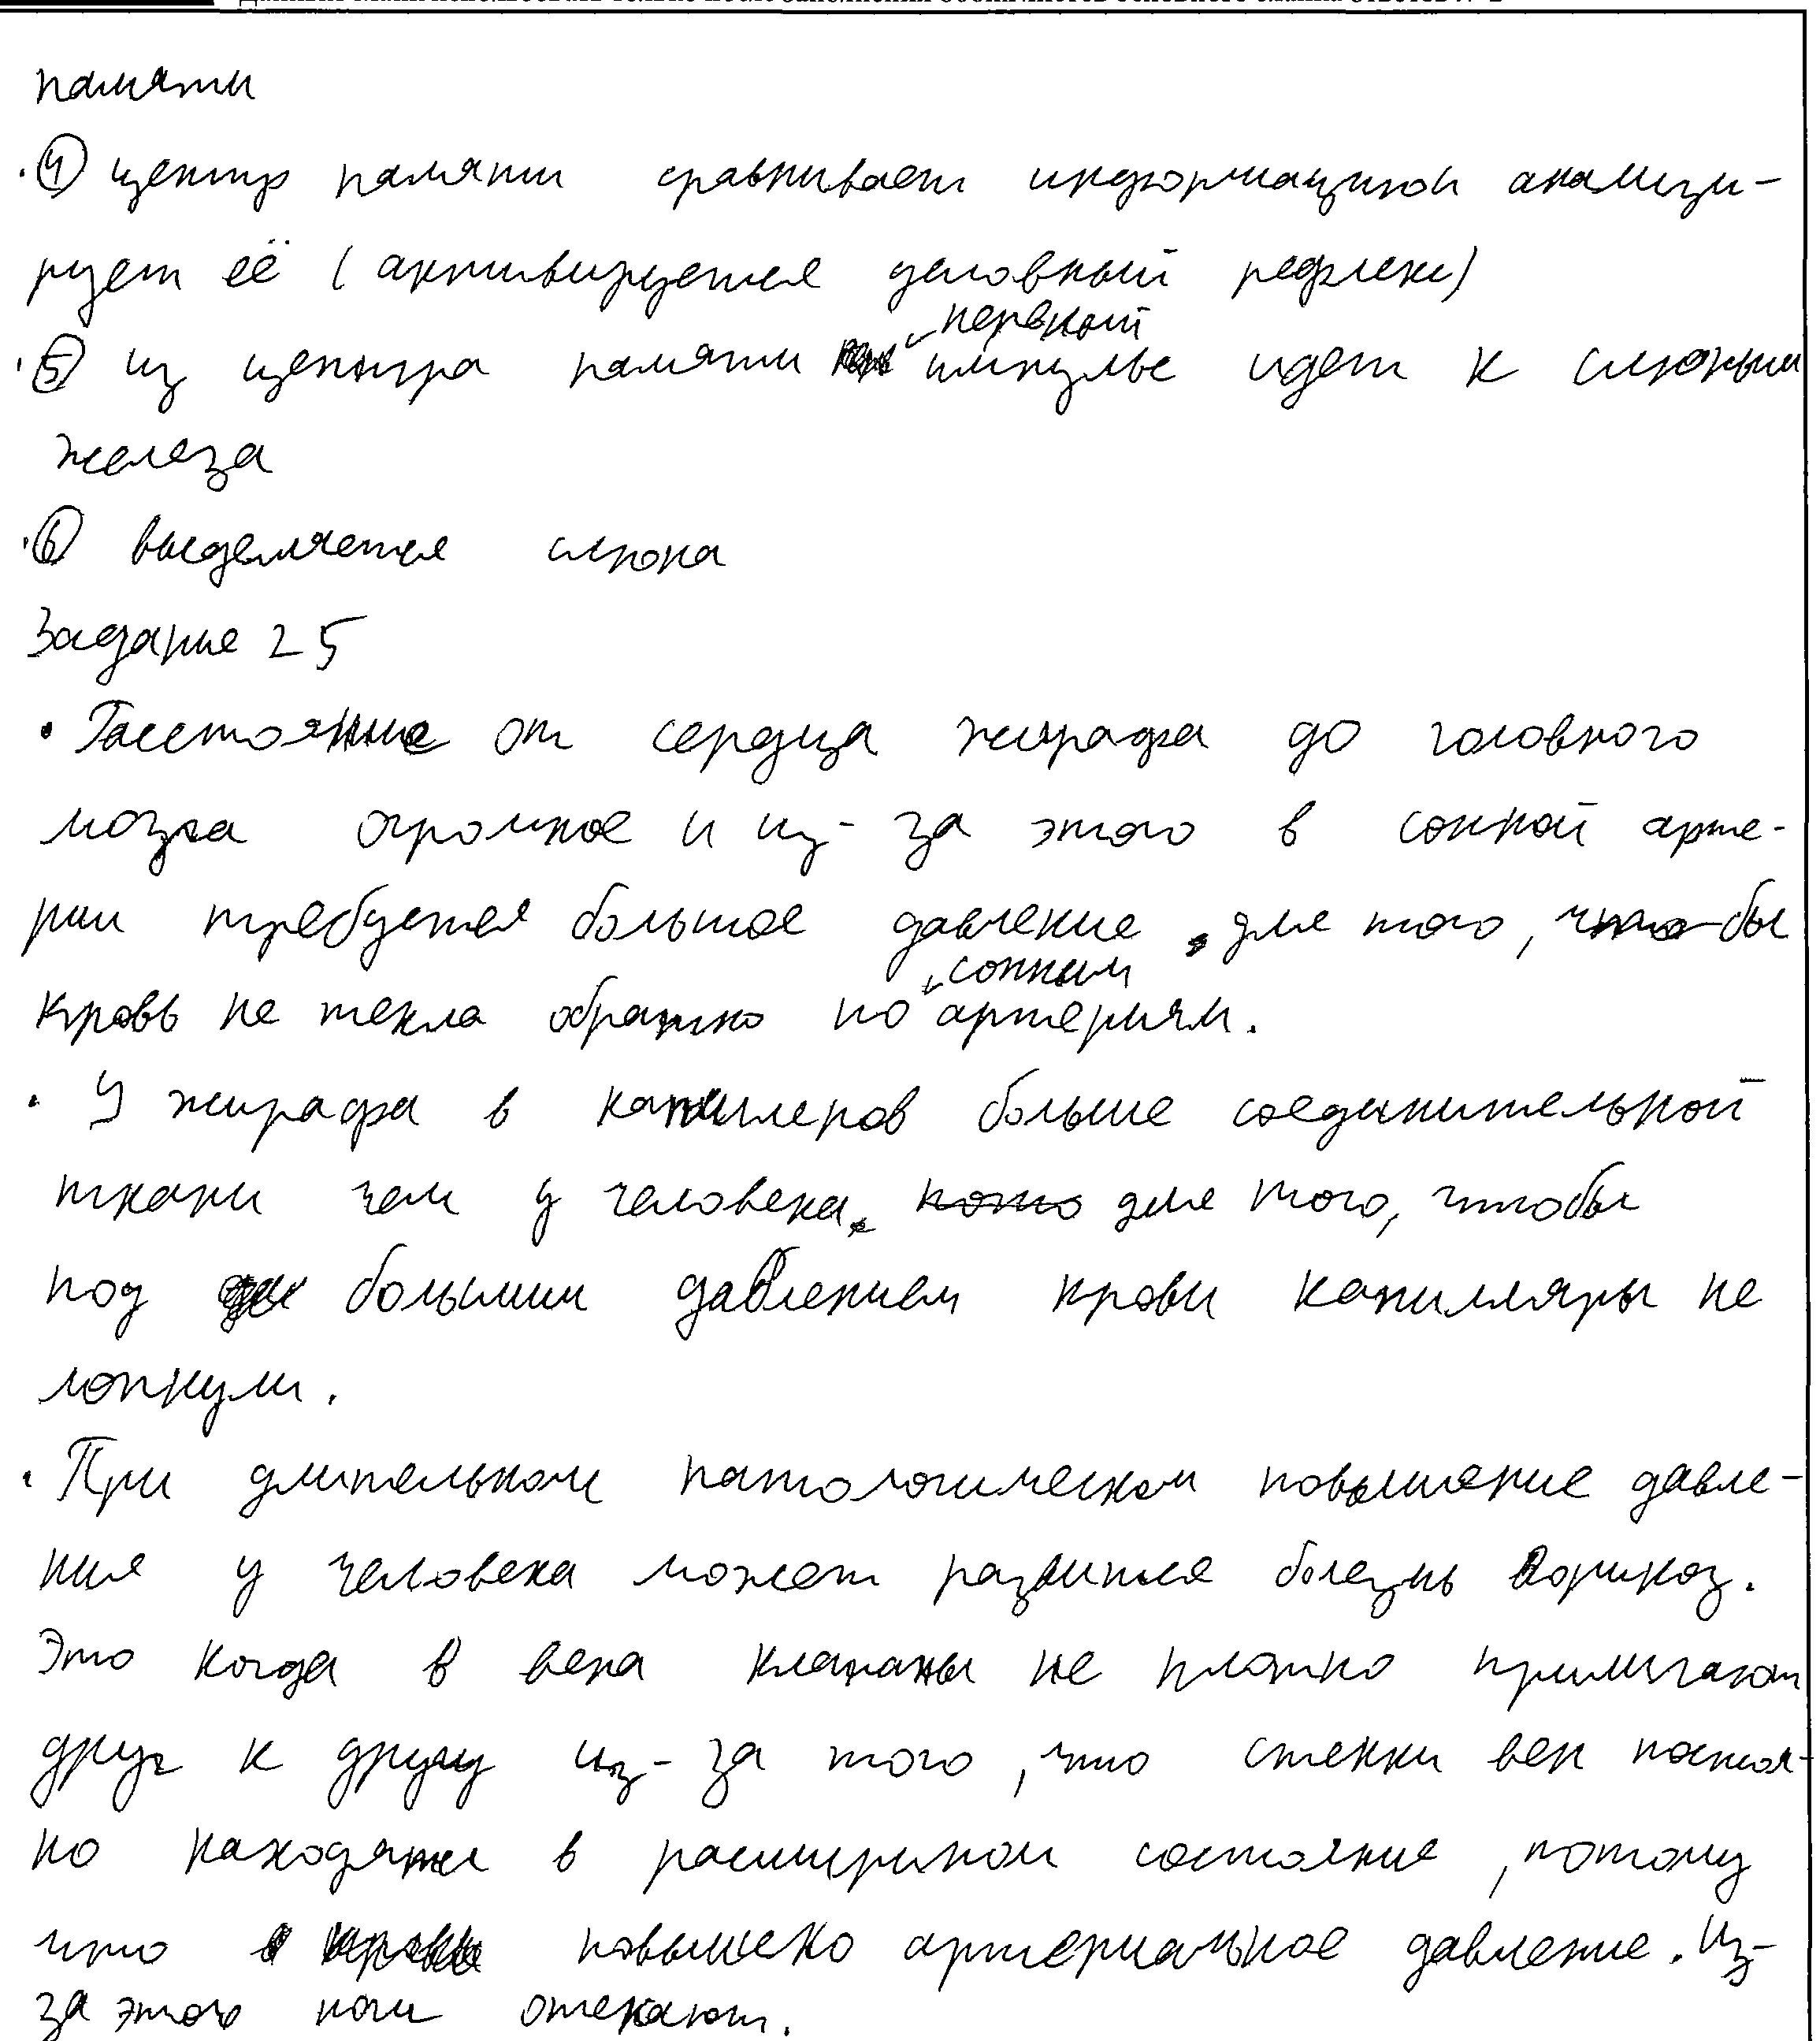 памяти
④ центр памяти сравнивает информацию и анализи-
рует её (активируется условный рефлекс)
⑤ из центра памяти нервный импульс идет к слюным
железа
⑥ выделяется слюна
Задание 25
• Расстояние от сердца жирафа до головного
мозга огромное и из-за этого в сонной арте-
рии требуется большое давление, для того, что бы
кровь не текла обратно по сонным артериям.
• У жирафа в капилеров больше соединительной
ткани чем у человека, для того, чтобы
под большим давлением крови капилляры не
лопнули.
• При длительном патологическом повышение давле-
ния у человека может развится болезнь Ворикоз.
Это когда в вена клапаны не плотно прилигают
друг к другу из-за того, что стенки вен постоя-
но находятся в расширином состояние, потому
что повышено артериальное давление. Из-
за этого ноги отекают.